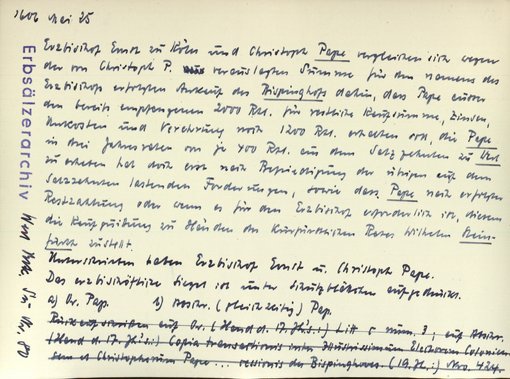 1606 Mai 25
Erzbischof Ernst zu Köln und Christoph Pape vergleichen sich wegen
der von Christoph P. verauslagten Summe für den namens des
Erzbischofs erfolgten Ankauf des Bispinghofs dahin, dass Pape ausser
den bereits empfangenen 2000 Rtl. für restliche Kaufsumme, Zinsen,
Unkosten und Verehrung noch 1200 Rtl. erhalten soll, die Pape
in drei Jahresraten von je 400 Rtl. aus dem Salzzehnten zu Werl
zu erheben hat doch erst nach Befriedigung der übrigen auf dem
Salzzehnten lastenden Forderungen, sowie dass Pape nach erfolgter
Restzahlung oder wenn es für den Erzbischof erforderlich ist, diesem
die Kaufquittung zu Händen des Kurfürstlichen Rates Wilhelm
zustellt.
Unterschrieben haben Erzbischof Ernst u. Christoph Pape.
Das erzbischöfliche Siegel ist unter Schutzblättchen aufgedrückt.
a) Or. Pap. b) Abschr. (gleichzeitig) Pap.
Rückaufschriften auf Or. (Hand d. 17. Jhs.:) Litt c num. 3, auf Abschr.
(Hand d. 17. Jhs.:) Copia transactionis inter Illustrissimum Electorem Coloniensem
et Christophorum Pape ... Bispinghoven (19. Jh.:) Nro. 424.
Erbsälzerarchiv